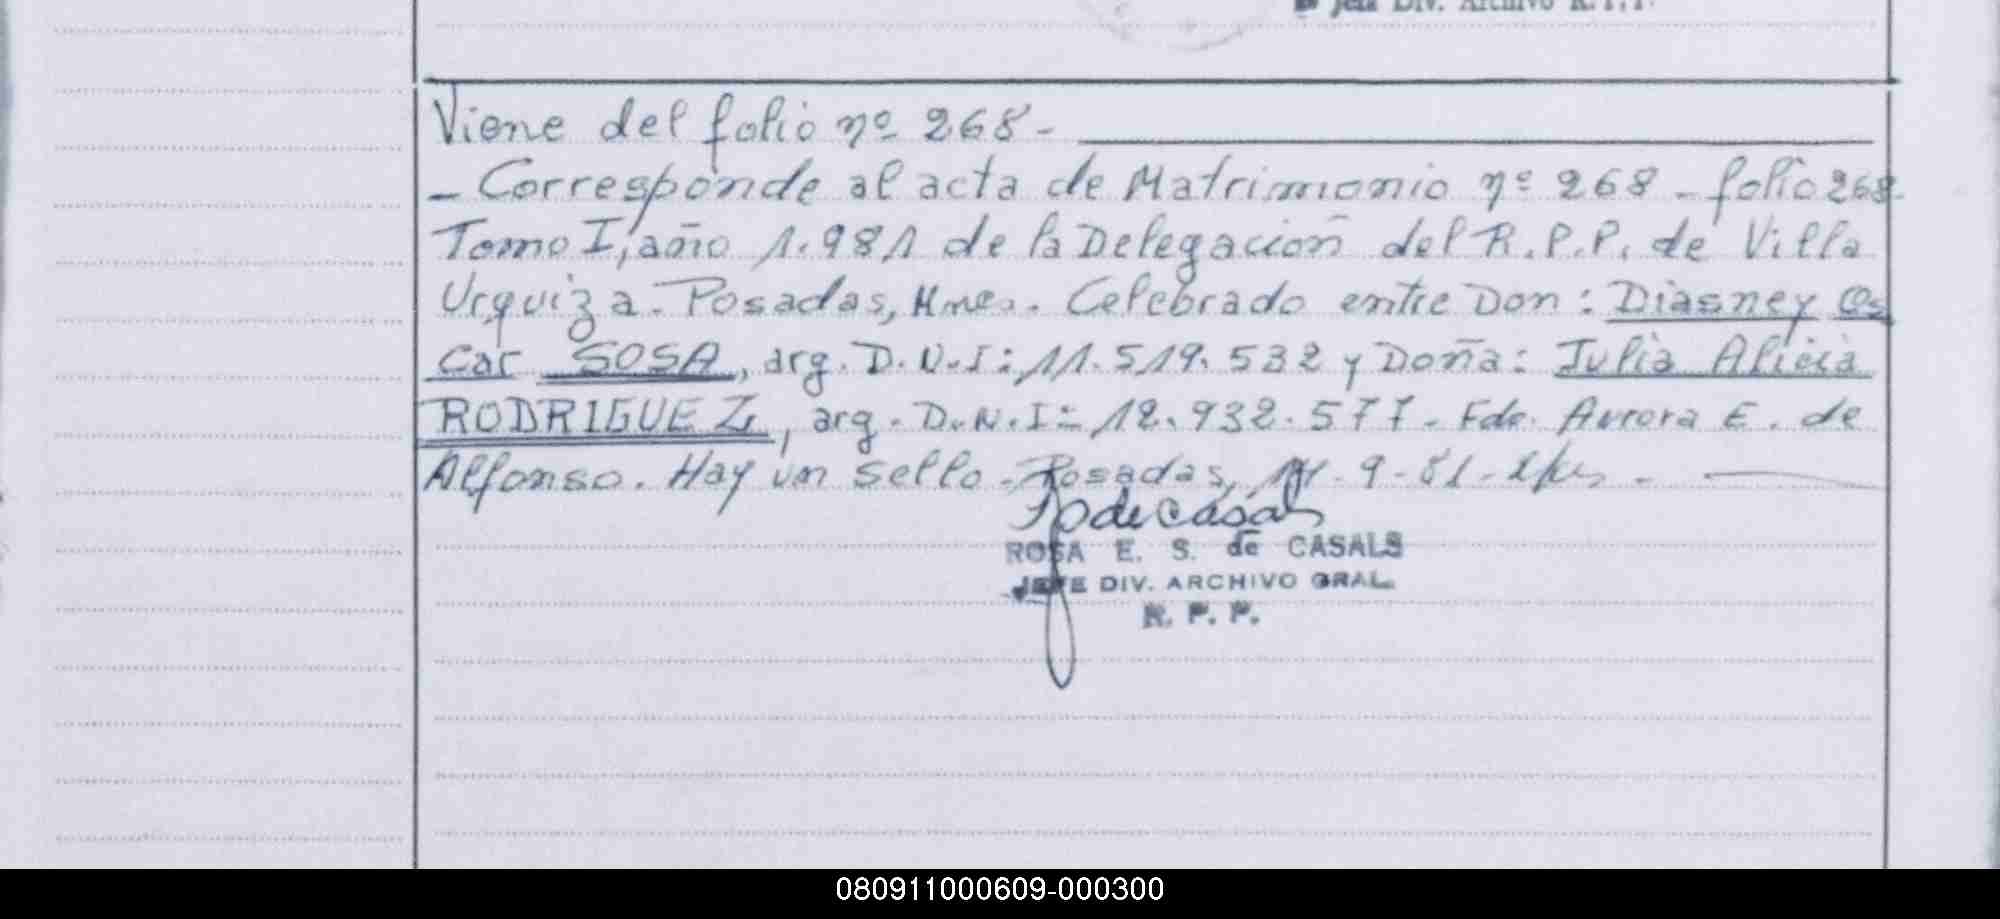 Jefa Div. Archivo R.P.P.
Viene del folio nº 268-
- Corresponde al acta de Matrimonio nº 268 - folio 268-
Tomo I, año 1.981 de la Delegación del R.P.P. de Villa
Urquiza. Posadas, Mnes. Celebrado entre Don: Diasney Os
car SOSA, arg. D.N.I: 11.519.532 y Doña: Julia Alicia
RODRIGUEZ, arg. D.N.I: 12.932.577- Fdo. Aurora E. de
Alfonso. Hay un sello. Posadas, 9-81-
de Casals
ROSA E. S. de CASALS
JEFE DIV. ARCHIVO GRAL.
R. P. P.
080911000609-000300